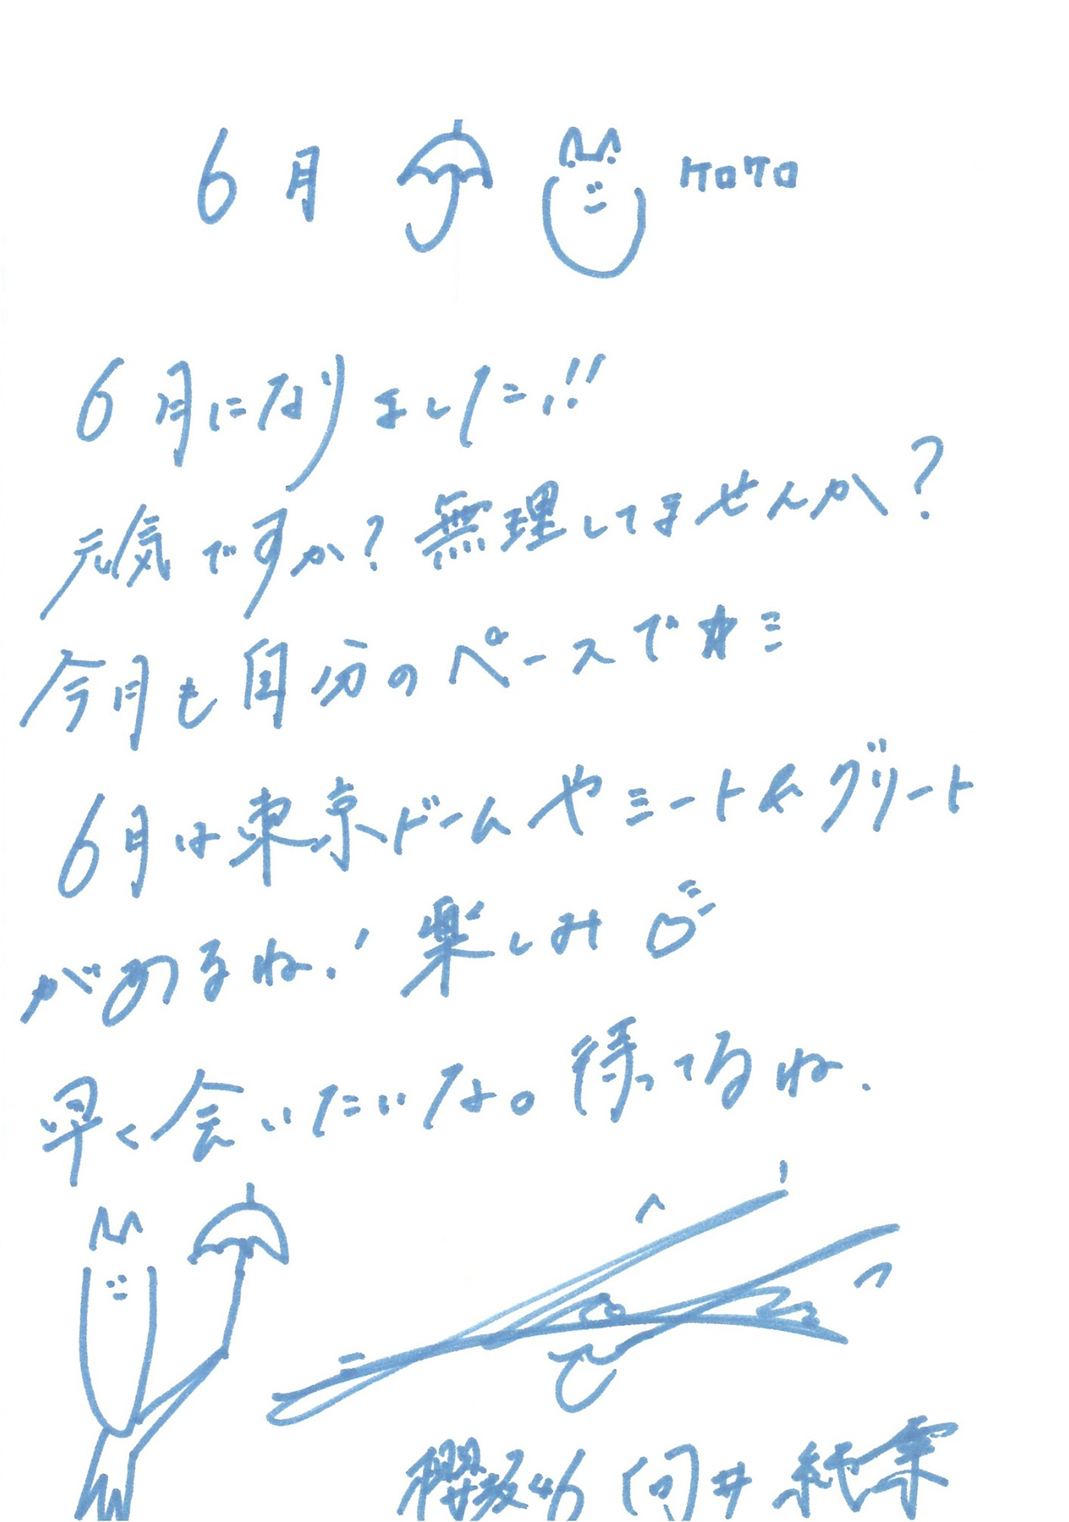 6月 ケロケロ
6月になりました!!
元気ですか?無理してませんか?
今月も自分のペースで☆ミ
6月は東京ドームやミート&グリート
があるね!楽しみ
早く会いたいな。待ってるね.
櫻坂46 向井純葉